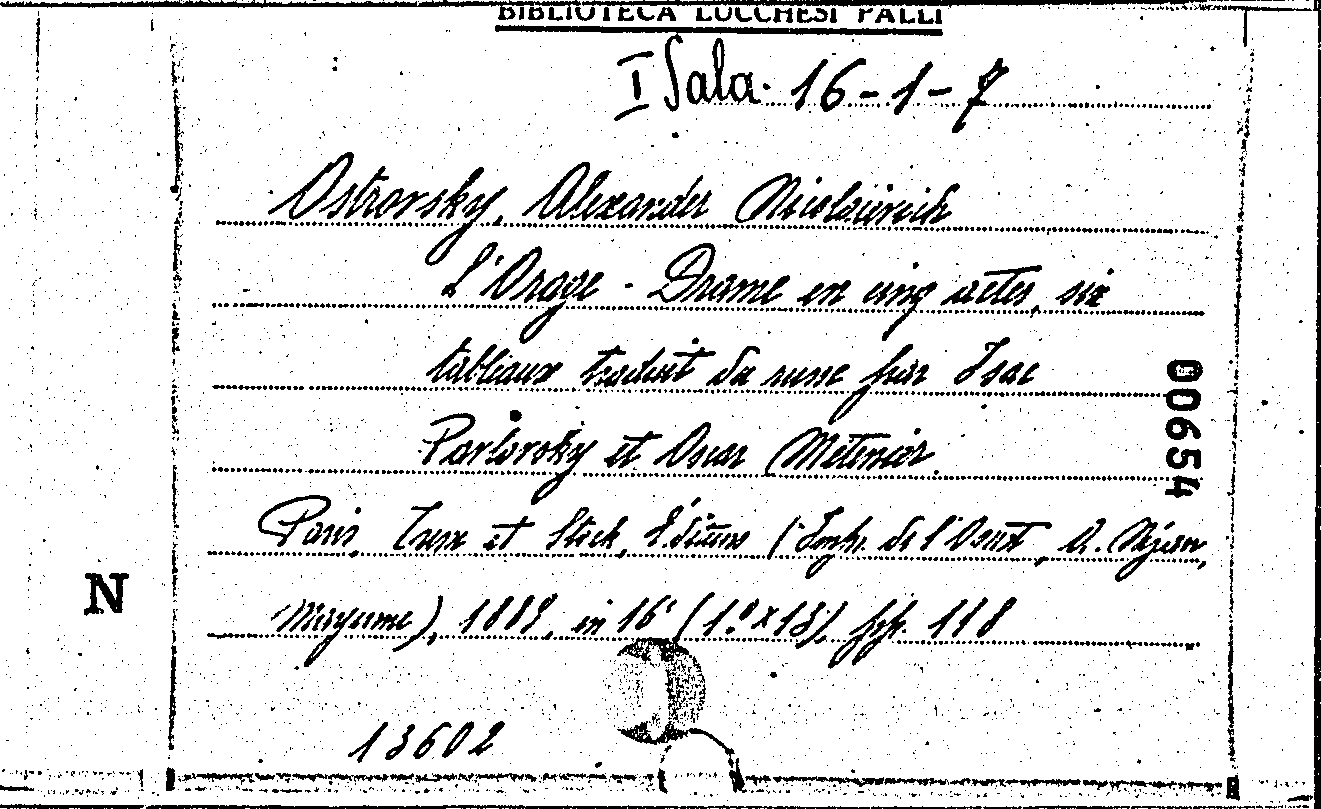 BIBLIOTECA LUCCHESI PALLI
I Sala. 16-1-7
Ostrovsky, Alexander Nicolaievich
L'Orage - Drame en cinq actes, six
tableaux traduit du russe par Isac
Pavlovsky et Oscar Méténier.
Paris, Tresse et Stock, Editeurs (Impr. de l'Ouest, A. Nézan,
Mayenne), 1889, in 16° pp. 118
00654
N
13602